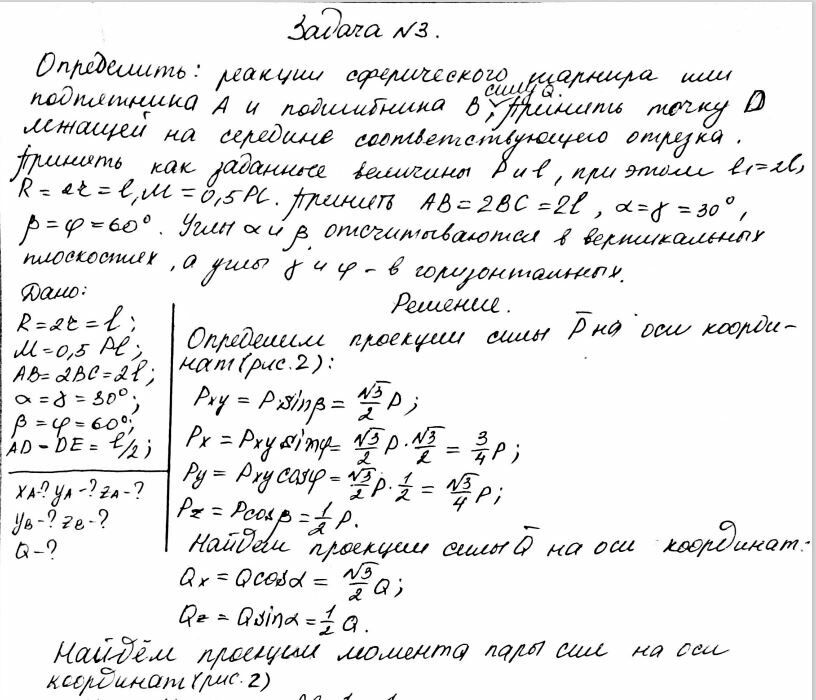 Задача №3.
Определить: реакции сферического шарнира или
подпятника А и подшибника В, силу Q. Принить точку D
лежащей на середине соответствующего отрезка.
Принить как заданные величины P и l, при этом l₁=2l,
R=2r=l, M=0,5Pl. Принить AB=2BC=2l, α=γ=30°,
β=φ=60°. Углы α и β отсчитываются в вертикальных
плоскостях, а углы γ и φ - в горизонтальных.
Дано:
R=2r=l;
M=0,5 Pl;
AB=2BC=2l;
α=γ=30°;
β=φ=60°;
AD=DE=l/2;
XA-? YA-? ZA-?
YB-? ZB-?
Q-?
Решение.
Определим проекции силы P̄ на оси коорди-
нат (рис.2):
Pxy = Psinβ = √3/2 P;
Px = Pxy sinφ = √3/2 P · √3/2 = 3/4 P;
Py = Pxy cosφ = √3/2 P · 1/2 = √3/4 P;
Pz = Pcosβ = 1/2 P.
Найдём проекции силы Q̄ на оси координат:
Qx = Qcosα = √3/2 Q;
Qz = Qsinα = 1/2 Q.
Найдём проекции момента пары сил на оси
координат (рис.2)